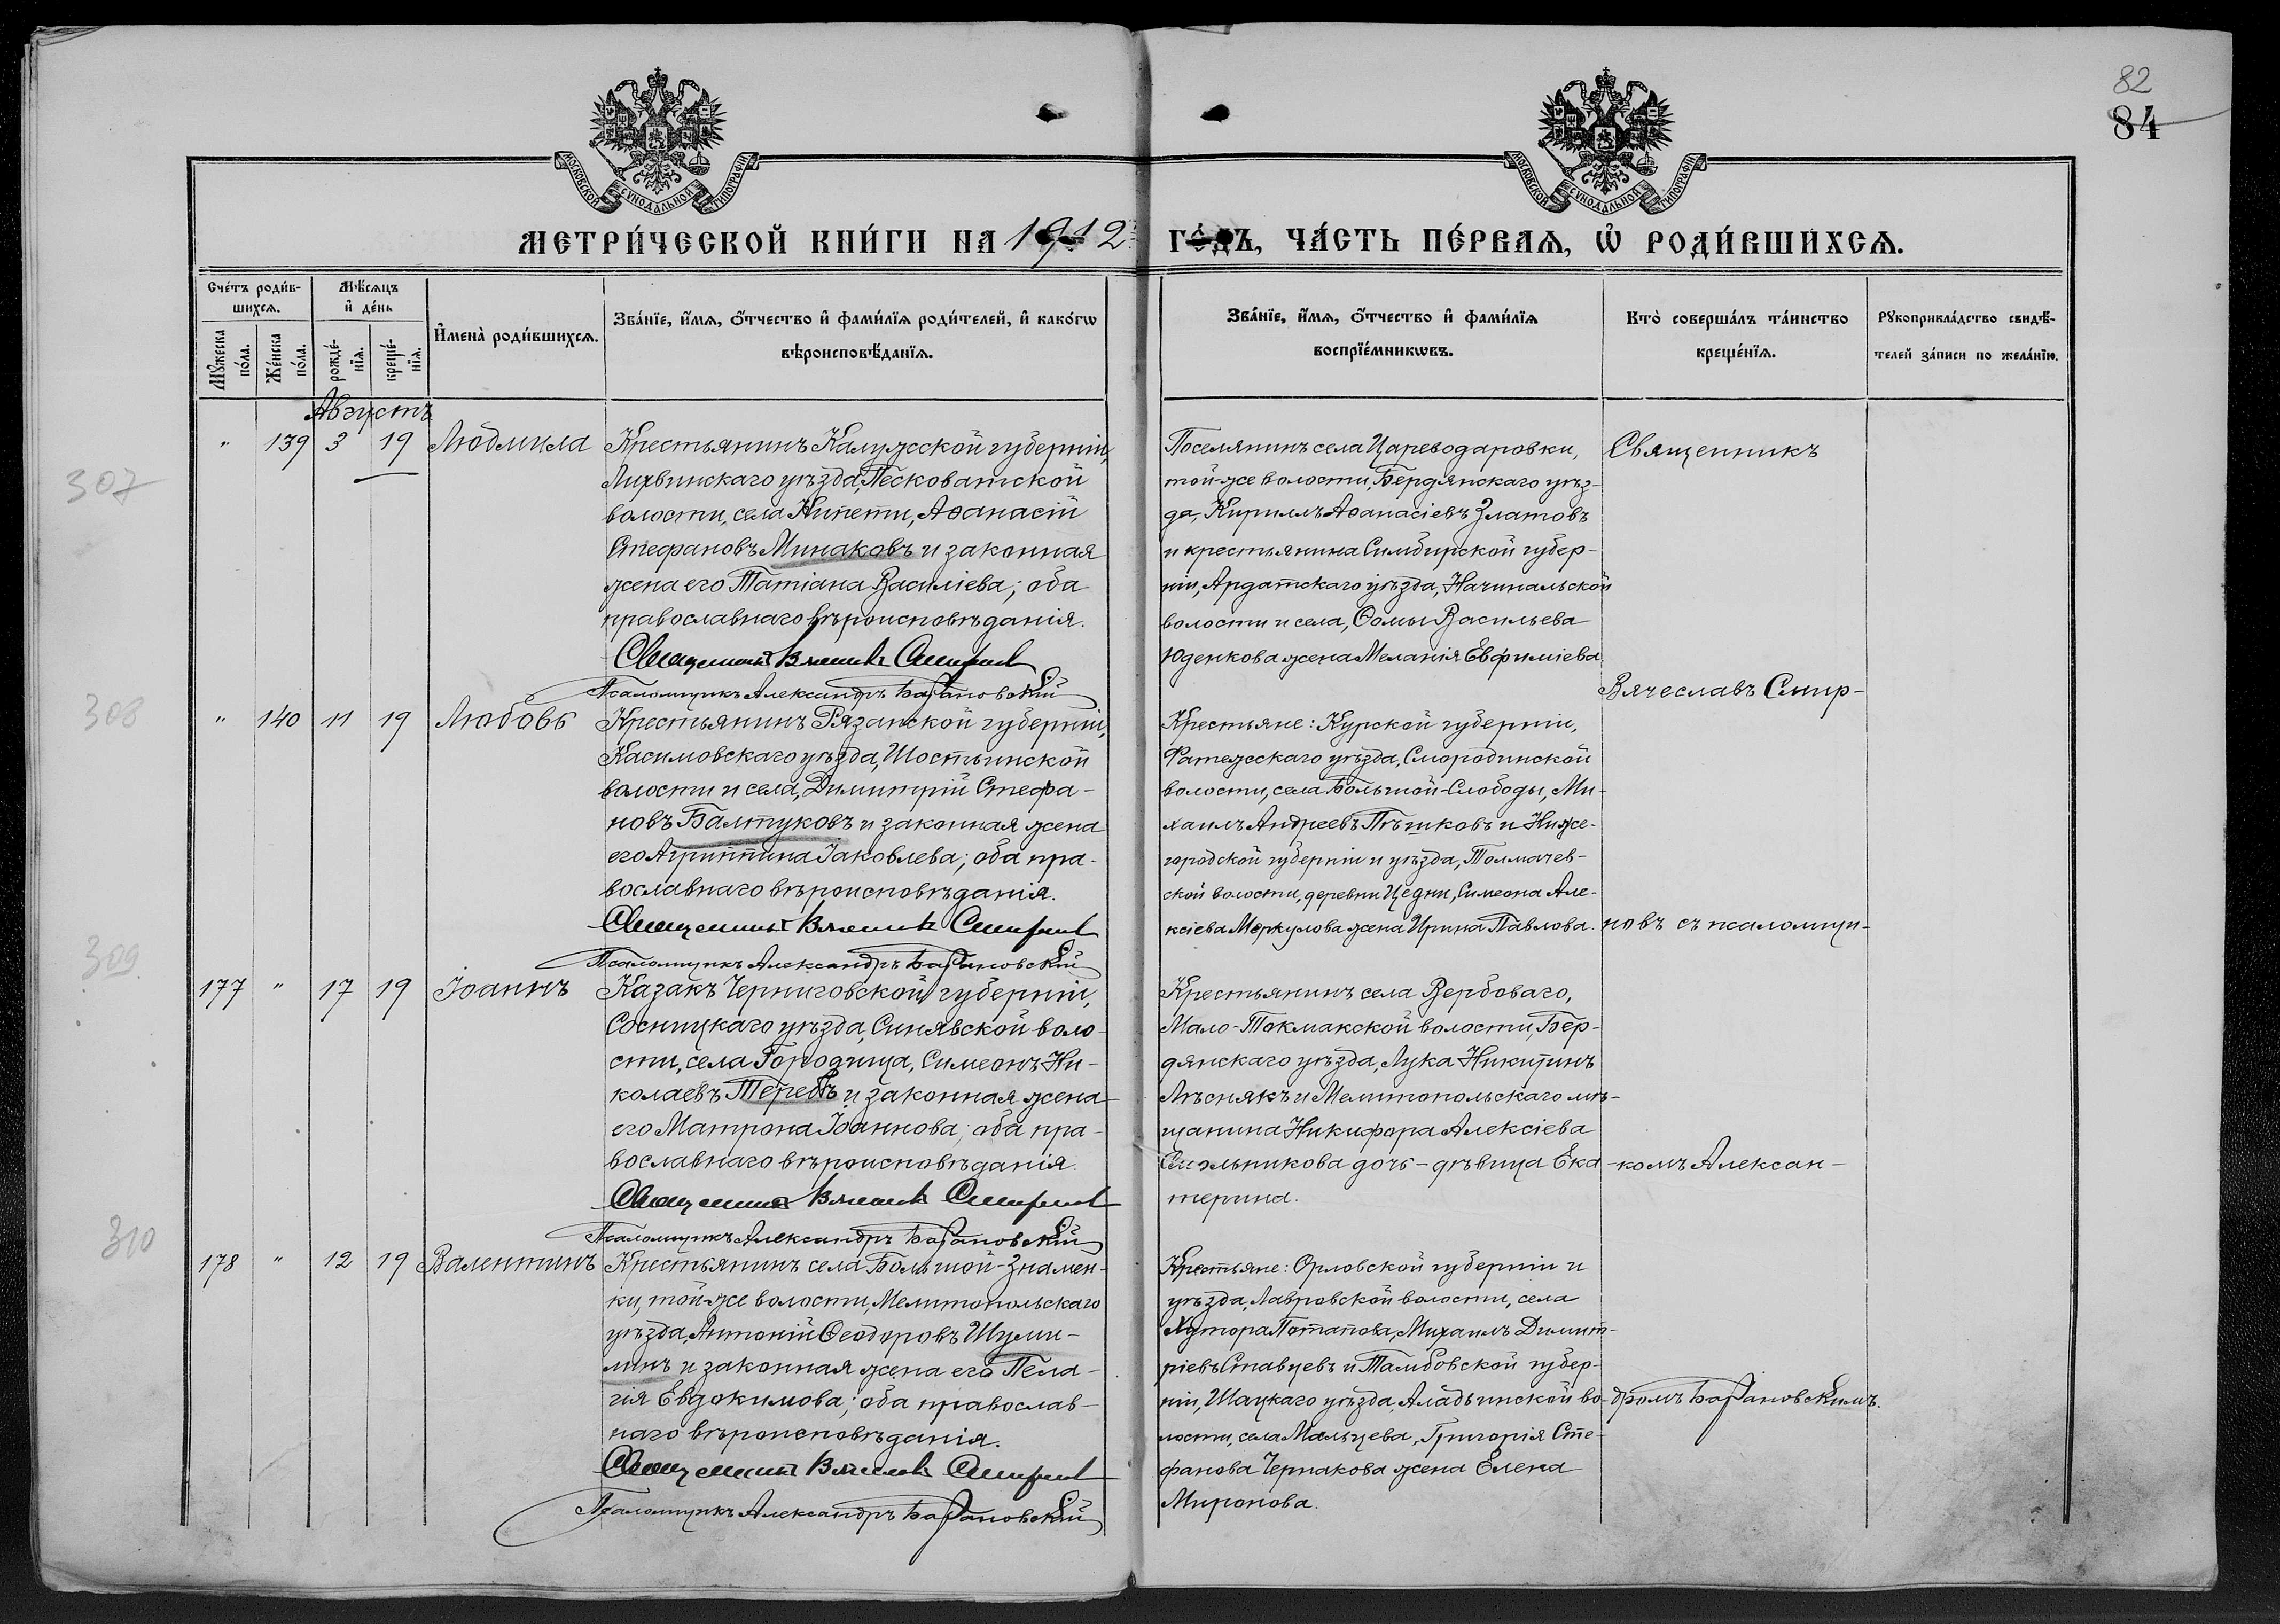 82
84
МОСКОВСКОЙ СѴНОДАЛЬНОЙ ТИПОГРАФІИ
МОСКОВСКОЙ СѴНОДАЛЬНОЙ ТИПОГРАФІИ
МЕТРИ́ЧЕСКОЙ КНИ́ГИ НА 1912 ГО́ДЪ, ЧА́СТЬ ПЕ́РВАѦ, Ѡ҆ РОДИ́ВШИХСѦ.
Сче́тъ роди́в-
шихсѧ.
Мꙋ́жеска по́ла.
Же́нска по́ла.
Мѣ́сѧцъ
и҆ де́нь
рожде́-
нїѧ.
креще́-
нїѧ.
И҆мена̀ роди́вшихсѧ.
Зва́нїе, и҆́мѧ, ѻ҆́тчество и҆ фами́лїѧ роди́телей, и҆ како́гѡ
вѣроисповѣ́данїѧ.
Зва́нїе, и҆́мѧ, ѻ҆́тчество и҆ фами́лїѧ
воспрїе́мникѡвъ.
Кто̀ соверша́лъ та́инство
креще́нїѧ.
Рꙋкоприкла́дство свидѣ́-
телей за́писи по жела́нїю.
Августъ
307
" 139 3 19 Людмила
Крестьянинъ Калужской губерніи,
Лихвинскаго уѣзда, Песковатской
волости, села Кипети, Аѳанасій
Стефановъ Минаковъ и законная
жена его Татіана Василіева; оба
православнаго вѣроисповѣданія.
Священникъ Вячеславъ Смирновъ
Псаломщикъ Александръ Барановскій
Поселянинъ села Цареводаровки,
той-же волости, Бердянскаго уѣз-
да, Кириллъ Аѳанасіевъ Златовъ
и крестьянина Симбирской губер-
ніи, Ардатскаго уѣзда, Качинальской
волости и села, Ѳомы Васильева
Юденкова жена Меланія Евфиміева.
Священникъ
Вячеславъ Смир-
308
" 140 11 19 Любовь
Крестьянинъ Рязанской губерніи,
Касимовскаго уѣзда, Шостьинской
волости и села, Димитрій Стефа-
новъ Балтуковъ и законная жена
его Агриппина Іаковлева; оба пра-
вославнаго вѣроисповѣданія.
Священникъ Вячеславъ Смирновъ
Псаломщикъ Александръ Барановскій
Крестьяне: Курской губерніи,
Фатежскаго уѣзда, Смородинской
волости, села Большой-Слободы, Ми-
хаилъ Андреевъ Пѣшковъ и Ниже-
городской губерніи и уѣзда, Толмачев-
ской волости, деревни Цедни, Симеона Але-
ксіева Меркулова жена Ирина Павлова.
новъ съ псаломщи-
309
177 " 17 19 Іоаннъ
Казакъ Черниговской губерніи,
Сосницкаго уѣзда, Синявской воло-
сти, села Городища, Симеонъ Ни-
колаевъ Теребъ и законная жена
его Матрона Іоаннова; оба пра-
вославнаго вѣроисповѣданія.
Священникъ Вячеславъ Смирновъ
Псаломщикъ Александръ Барановскій
Крестьянинъ села Вербоваго,
Мало-Токмакской волости, Бер-
дянскаго уѣзда, Лука Никитинъ
Лѣснякъ и Мелитопольскаго мѣ-
щанина Никифора Алексіева
дочь-дѣвица Ека-
терина.
комъ Алексан-
310
178 " 12 19 Валентинъ
Крестьянинъ села Большой-Знамен-
ки, той-же волости, Мелитопольскаго
уѣзда, Антоній Ѳеодоровъ Шули-
линъ и законная жена его Пела-
гія Евдокимова; оба православ-
наго вѣроисповѣданія.
Священникъ Вячеславъ Смирновъ
Псаломщикъ Александръ Барановскій
Крестьяне: Орловской губерніи и
уѣзда, Лавровской волости, села
Хутора Потапова, Михаилъ Димит-
ріевъ Ставцевъ и Тамбовской губер-
ніи, Шацкаго уѣзда, Аладьинской во-
лости, села Мальцева, Григорія Сте-
фанова Чернакова жена Елена
Миронова.
дромъ Барановскимъ.